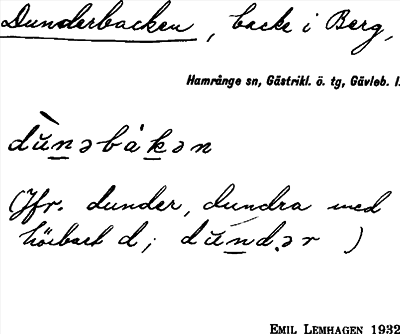 Dunderbacken, backe i Berg,
Hamrånge sn, Gästrikl. ö. tg, Gävleb. l.
dùnəbåkən
(Jfr. dunder, dundra med
hörbart d; dundər)
EMIL LEMHAGEN 1932